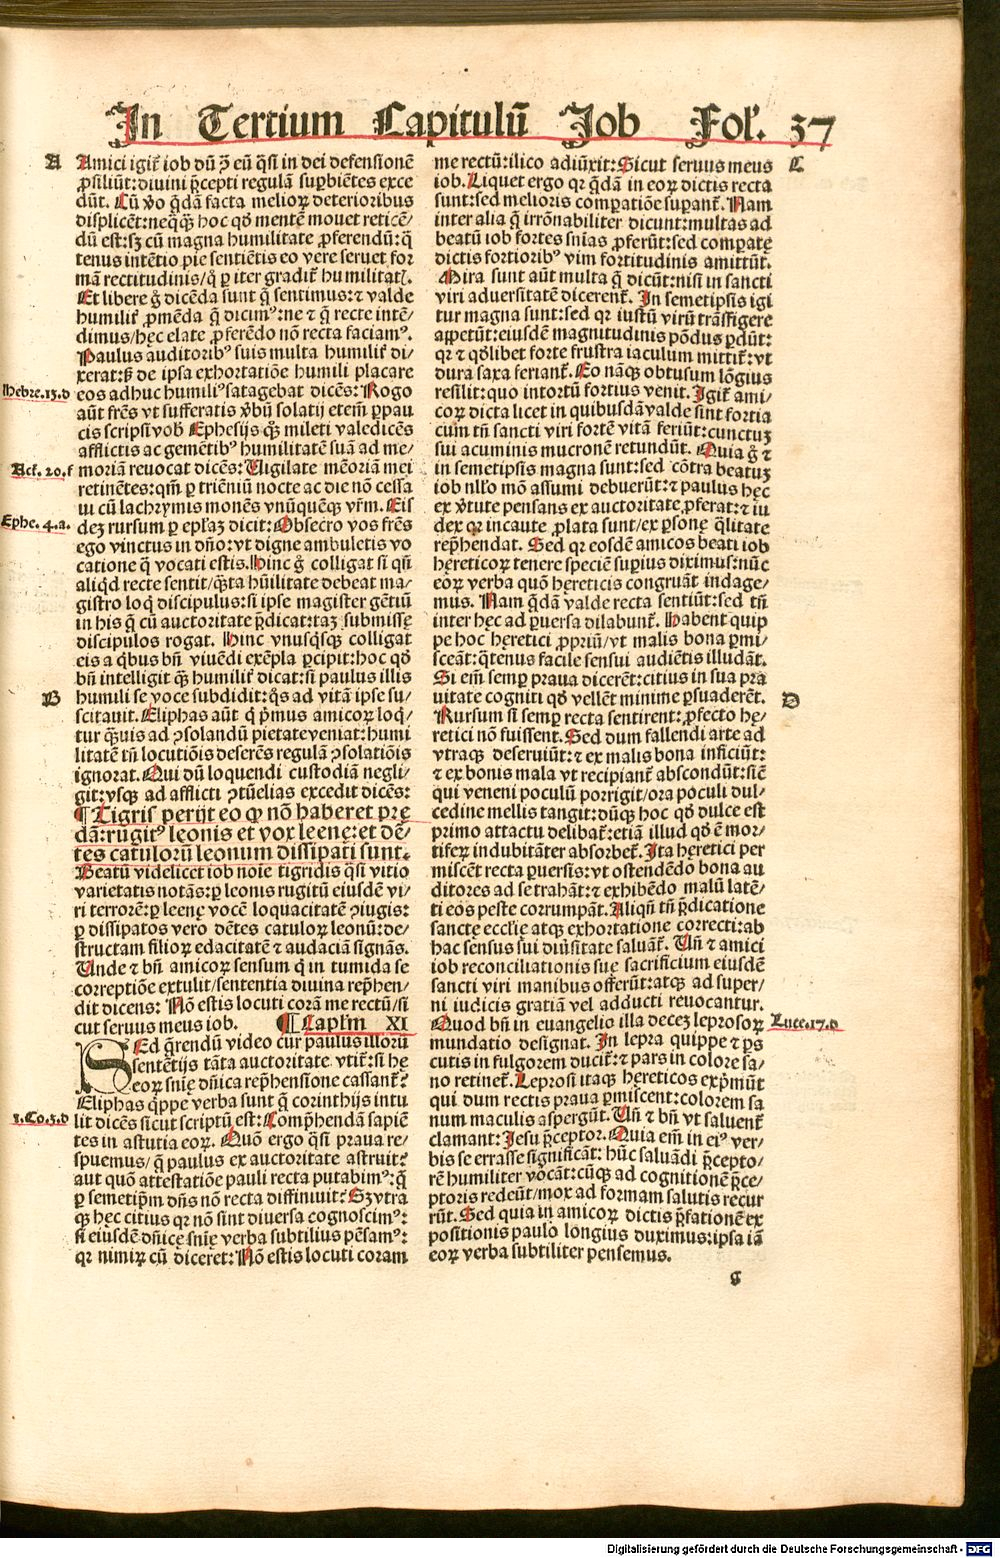 In Tertium Capitulū Job Fol. 37
A
Amici igit̄ iob dū ꝯ eū q̄si in dei defensionē
ꝓsiliūt: diuini p̄cepti regulā suꝑbiētes exce
dūt. Cū ꝟo q̄dā facta melioꝝ deterioribus
displicēt: neq̄ꝗ hoc qđ mentē mouet reticē/
dū est: sꝫ cū magna humilitate ꝓferendū: q̄
tenus intētio pie sentiētis eo vere seruet for
mā rectitudinis/ q̊ ꝑ iter gradit̄ humilitatꝭ.
Et libere g̊ dicēda sunt q̄ sentimus: ⁊ valde
humilit̄ ꝓmēda q̄ dicimꝰ: ne ⁊ q̄ recte intē/
dimus/ hęc elate ꝓferēdo nō recta faciamꝰ.
Paulus auditoribꝰ suis multa humilit̄ di/
xerat: sꝫ de ipsa exhortatiōe humili placare
Hebre.13.d
eos adhuc humiliꝰ satagebat dicēs: Rogo
aūt frēs vt sufferatis ꝟbū solatij etem̄ ꝑpau
cis scripsi vob̄ Ephesijs q̄ꝫ mileti valedicēs
afflictis ac gemētibꝰ humilitatē suā ad me/
Act. 20.f
moriā reuocat dicēs: Uigilate mēoriā mei
retinētes: qm̄ ꝑ triēniū nocte ac die nō cessa
ui cū lachrymis monēs vnūquēqꝫ vr̄m. Eis
Ephe. 4.a.
deꝫ rursum ꝑ ep̄łaꝫ dicit: Obsecro vos frēs
ego vinctus in dn̄o: vt digne ambuletis vo
catione q̄ vocati estis. Hinc g̊ colligat si q̄si
aliqd̄ recte sentit/ q̄ꝫta hūilitate debeat ma/
gistro loq̄ discipulus: si ipse magister gētiū
in his q̄ cū auctoritate p̄dicat: taꝫ submisse
discipulos rogat. Hinc vnusqsqꝫ colligat
eis a qbus bn̄ viuēdi exēpla ꝑcipit: hoc qđ
bn̄ intelligit q̄ꝫ humilit̄ dicat: si paulus illis
B
humili se voce subdidit: q̊s ad vitā ipse su/
scitauit. Eliphas aūt q̄ p̄mus amicoꝝ loq̄/
tur q̄ꝫuis ad ꝯsolandū pietate veniat: humi
litatē tn̄ locutiōis deserēs regulā ꝯsolatiōis
ignorat. Qui dū loquendi custodiā negli/
git: vsqꝫ ad afflicti ꝯtūelias excedit dicēs:
¶ Tigris perijt eo ꝙ nō haberet prę
dā: rugitꝰ leonis et vox leenę: et dē/
tes catulorū leonum dissipati sunt.
Beatū videlicet iob noīe tigridis q̄si vitio
varietatis notās: ꝑ leonis rugitū eiusdē vi/
ri terrorē: ꝑ leenę vocē loquacitatē ꝯiugis:
ꝑ dissipatos vero dētes catuloꝝ leonū: de/
structam filioꝝ edacitatē ⁊ audaciā signās.
Unde ⁊ bn̄ amicoꝝ sensum q̄ in tumida se
correptiōe extulit/ sententia diuina rep̄hen/
dit dicens: Nō estis locuti corā me rectū/ si
cut seruus meus iob. ¶ Caplm̄ XI
SEd q̄rendū video cur paulus illorū
sententijs tāta auctoritate vtit̄: si hę
eoꝝ sn̄ię dn̄ica rep̄hensione cassant̄?
Eliphas q̄ppe verba sunt q̄ corinthijs intu
1.Co.3.d
lit dicēs sicut scriptū est: Comp̄hendā sapiē
tes in astutia eoꝝ. Quō ergo q̄si praua re/
spuemus/ q̄ paulus ex auctoritate astruit?
aut quō attestatiōe pauli recta putabimꝰ: q̄
ꝑ semetip̄m dn̄s nō recta diffiniuit? Sꝫ vtra
qꝫ hęc citius qꝛ nō sint diuersa cognoscimꝰ:
si eiusdē dn̄icę sn̄ię verba subtilius pēsamꝰ:
qꝛ nimirꝝ cū diceret: Nō estis locuti coram
C
me rectū: ilico adiūxit: Sicut seruus meus
iob. Liquet ergo qꝛ q̄dā in eoꝝ dictis recta
sunt: sed melioris comꝑatiōe suꝑant̄. Nam
inter alia q̄ irrōnabiliter dicunt: multas ad
beatū iob fortes sn̄ias ꝓferūt: sed comꝑate
dictis fortioribꝰ vim fortitudinis amittūt.
Mira sunt aūt multa q̄ dicūt: nisi in sancti
viri aduersitatē dicerent̄. In semetipsis igi
tur magna sunt: sed qꝛ iustū virū trāsfigere
appetūt: eiusdē magnitudinis pōdus ꝑdūt:
qꝛ ⁊ qđlibet forte frustra iaculum mittit̄: vt
dura saxa feriant̄. Eo nāqꝫ obtusum lōgius
resilit: quo intortū fortius venit. Igit̄ ami/
coꝝ dicta licet in quibusdā valde sint fortia
cum tn̄ sancti viri fortē vitā feriūt: cunctuꝫ
sui acuminis mucronē retundūt. Quia g̊ ⁊
in semetipsis magna sunt: sed cōtra beatuꝫ
iob nll̄o mō assumi debuerūt: ⁊ paulus hęc
ex ꝟtute pensans ex auctoritate ꝓferat: ⁊ iu
dex qꝛ incaute ꝓlata sunt/ ex ꝑsonę q̄litate
rep̄hendat. Sed qꝛ eosdē amicos beati iob
hęreticoꝝ tenere speciē suꝑius diximus: nūc
eoꝝ verba quō hęreticis congruāt indage/
mus. Nam q̄dā valde recta sentiūt: sed tn̄
inter hęc ad ꝑuersa dilabunt̄. Habent quip
pe hoc hęretici ꝓpriū/ vt malis bona ꝑmi/
sceāt: q̄tenus facile sensui audiētis illudāt.
Si em̄ semꝑ praua dicerēt: citius in sua pra
D
uitate cogniti qđ vellēt minime ꝑsuaderēt.
Rursum si semꝑ recta sentirent: ꝓfecto hę/
retici nō fuissent. Sed dum fallendi arte ad
vtraqꝫ deseruiūt: ⁊ ex malis bona inficiūt:
⁊ ex bonis mala vt recipiant̄ abscondūt: sic̄
qui veneni poculū porrigit/ ora poculi dul/
cedine mellis tangit: dūqꝫ hoc qđ dulce est
primo attactu delibat̄: etiā illud qđ ē mor/
tifeꝝ indubitāter absorbet̄. Ita hęretici per
miscēt recta ꝑuersis: vt ostendēdo bona au
ditores ad se trahāt: ⁊ exhibēdo malū latē/
ti eos peste corrumpāt. Aliqn̄ tn̄ p̄dicatione
sanctę eccl̄ie atqꝫ exhortatione correcti: ab
hac sensus sui diūsitate saluāt̄. Un̄ ⁊ amici
iob reconciliationis suę sacrificium eiusdē
sancti viri manibus offerūt: atqꝫ ad super/
ni iudicis gratiā vel adducti reuocantur.
Luce.17.d
Quod bn̄ in euangelio illa deceꝫ leprosoꝝ
mundatio designat. In lepra quippe ⁊ ꝑs
cutis in fulgorem ducit̄: ⁊ pars in colore sa/
no retinet̄. Leprosi itaqꝫ hęreticos exp̄mūt
qui dum rectis praua ꝑmiscent: colorem sa
num maculis aspergūt. Un̄ ⁊ bn̄ vt saluent̄
clamant: Iesu p̄ceptor. Quia em̄ in eiꝰ ver/
bis se errasse significāt: hūc saluādi p̄cepto/
rē humiliter vocāt: cūqꝫ ad cognitionē p̄ce/
ptoris redeūt/ mox ad formam salutis recur
rūt. Sed quia in amicoꝝ dictis p̄fationē ex
positionis paulo longius duximus: ipsa iā
eoꝝ verba subtiliter pensemus.
g
Digitalisierung gefördert durch die Deutsche Forschungsgemeinschaft - DFG